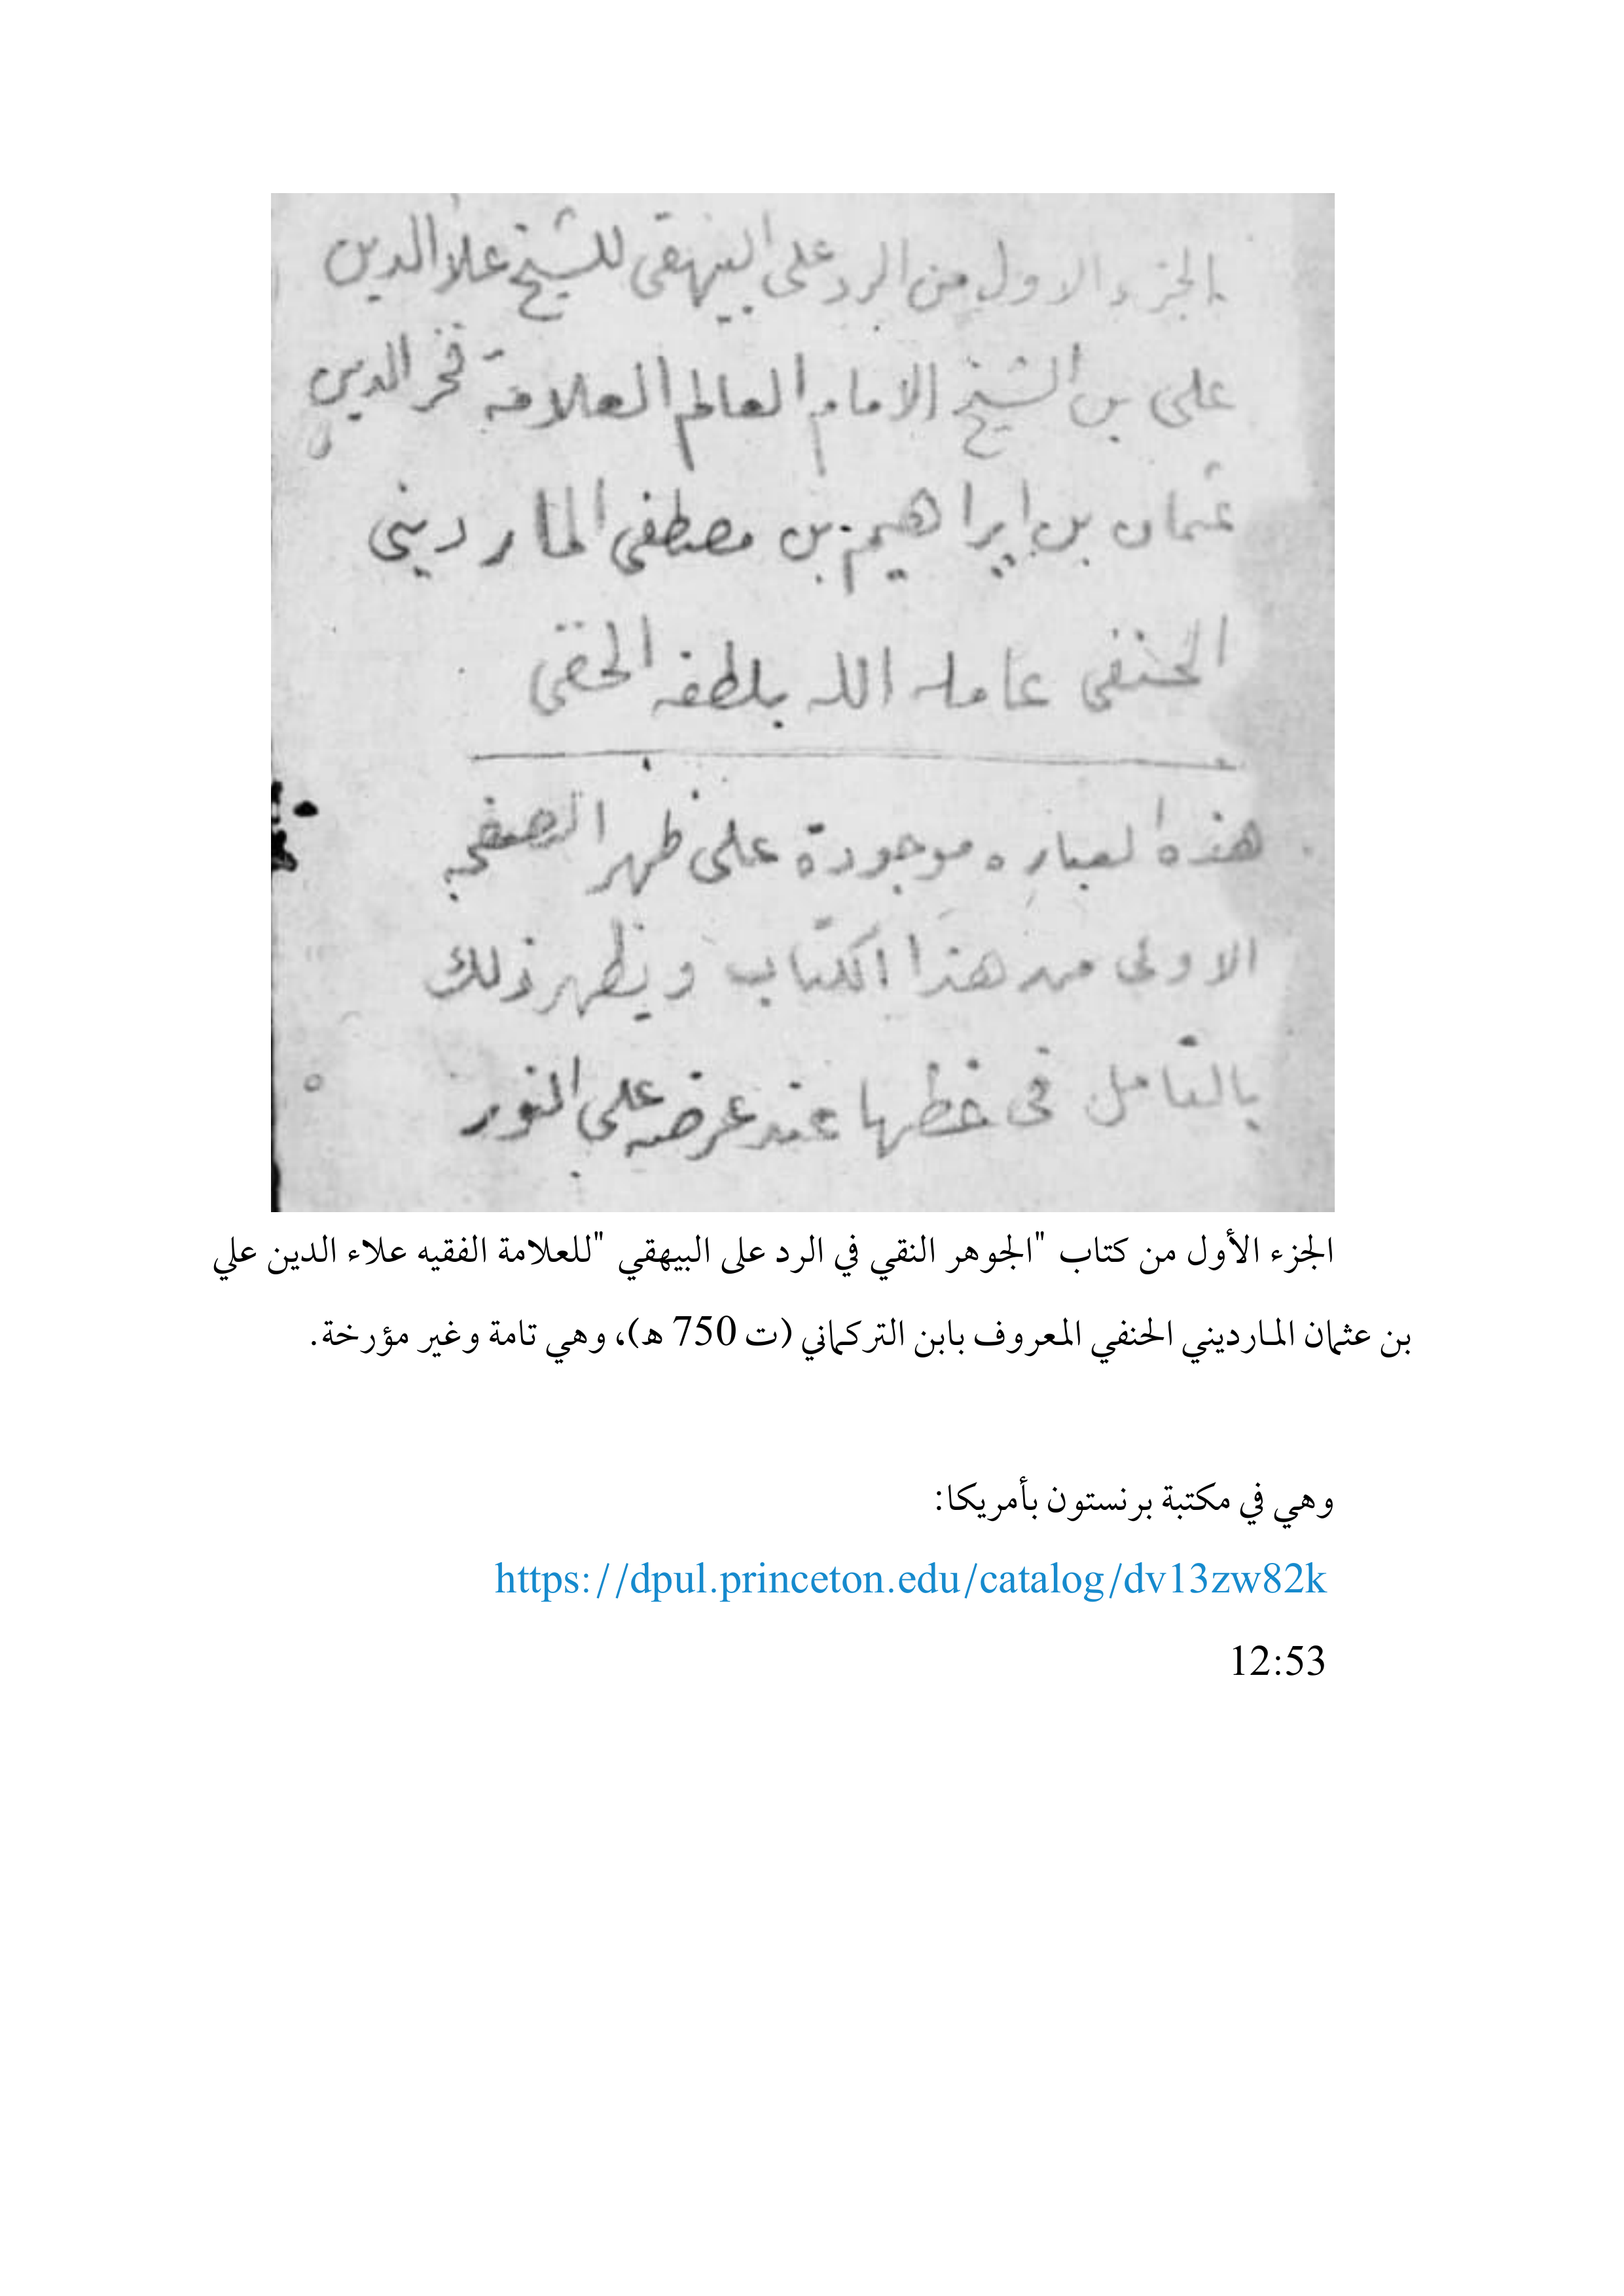 الجزء الاول من الرد على البيهقى للشيخ علا الدين
على بن الشيخ الامام العالم العلامة فخر الدين
عثمان بن ابراهيم بن مصطفى الماردينى
الحنفى عامله الله بلطفه الخفى
هذه العباره موجودة على ظهر الصفحه
الاولى من هذا الكتاب ويظهر ذلك
بالتامل فى خطها عند عرضه على النور
الجزء الأول من كتاب "الجوهر النقي في الرد على البيهقي "للعلامة الفقيه علاء الدين علي
بن عثمان المارديني الحنفي المعروف بابن التركماني (ت 750 ه)، وهي تامة وغير مؤرخة.
وهي في مكتبة برنستون بأمريكا:
https://dpul.princeton.edu/catalog/dv13zw82k
12:53